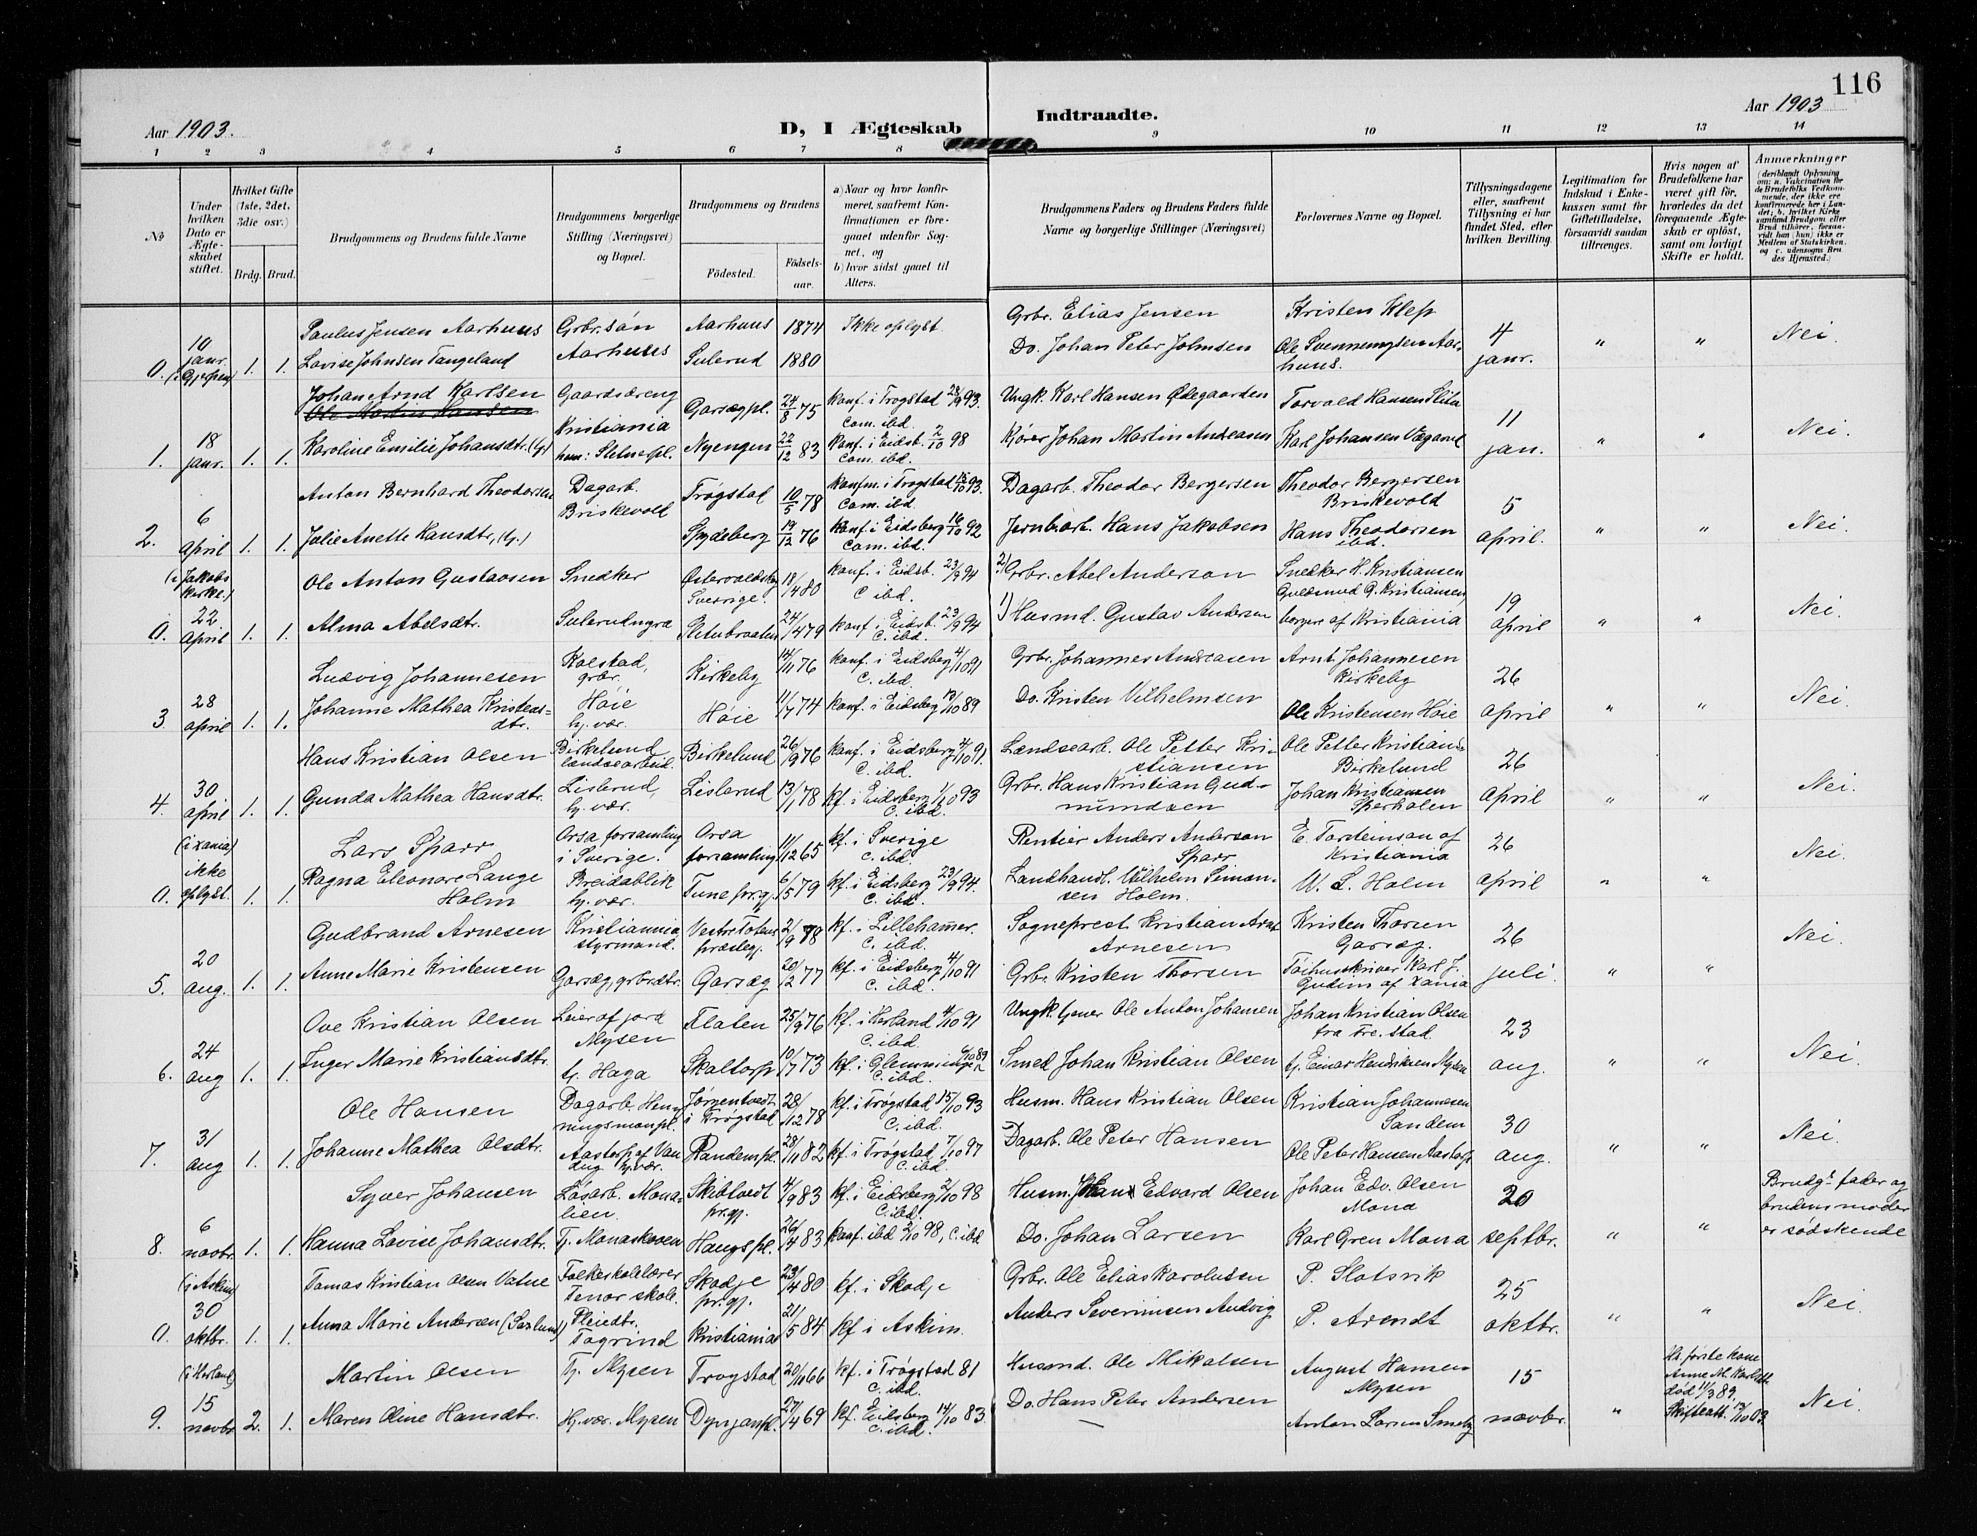 116
Aar 1903.
D, I Ægteskab Indtraadte.
Aar 1903
1 2 3 4 5 6 7 8 9 10 11 12 13 14
No
Under hvilken Dato er Ægteskabet stiftet.
Hvilket Gifte (1ste, 2det, 3die osv.)
Brdg. Brud.
Brudgommens og Brudens fulde Navne
Brudgommens borgerlige Stilling (Næringsvei) og Bopæl.
Brudgommens og Brudens
Fødested. Fødselsaar.
a) Naar og hvor konfirmeret, saafremt Konfirmationen er foregaaet udenfor Sognet, og
b) hvor sidst gaaet til Alters.
Brudgommens Faders og Brudens Faders fulde Navne og borgerlige Stillinger (Næringsvei)
Forlovernes Navne og Bopæl.
Tillysningsdagene eller, saafremt Tillysning ei har fundet Sted, efter hvilken Bevilling.
Legitimation for Indskud i Enkekassen samt for Giftetilladelse, forsaavidt saadan tiltrænges.
Hvis nogen af Brudefolkene har været gift før, hvorledes da det foregaaende Ægteskab er opløst, samt om lovligt Skifte er holdt.
Anmærkninger (deriblandt Oplysning om: a. Vaccination for de Brudefolks Vedkommende, der ikke ere konfirmerede her i Landet; b. hvilket Kirkesamfund Brudgom eller Brud tilhører, forsaavidt han (hun) ikke er Medlem af Statskirken, og c. udensogns Brudes Hjemsted.)
Paulus Jensen Aarhuus Grbr. søn Aarhuus 1874 Ikke oplyst. Grbr. Elias Jensen Kristen Klep
0. 10 janr. 1. 1. Lovise Johnsen Tangeland Aarhuus Sulerud 1880 Do. Johan Peter Johnsen Ole Svennungsen Aarhuus. 4 janr. " " Nei.
Johan Arnd Karlsen Gaardsdreng Garsegpl. 24/8 75 konf. i Trøgstad 93. Ungk. Karl Hansen Ødegaarden Torvald Hansen
Ole Martin Hansen Kristiania com. ibd.
1. 18 janr. 1. 1. Karoline Emilie Johansdtr. hun: Sletnerpl. Nyengen 22/12 83 konf. i Eidsb. 2/10 98 com. ibd. Kjører Johan Martin Andreasen Karl Johansen 11 jan. " " Nei.
Anton Bernhard Theodorsen Dagarb. Briskevold Trøgstad 10/5 78 konfm. i Trøgstad 93. com. ibd. Dagarb. Theodor Bergersen Theodor Bergersen Briskevold
2. 6 April 1. 1. Julie Anette Hansdtr. Spydeberg 19/12 76 konf. i Eidsberg 16/10 92 com. ibd. Jernbarb. Hans Jakobsen Hans Theodorsen ibd. 5 April. " " Nei.
(i Jakobs kirke.) Ole Anton Gustavsen Snedker Sverrige. 18/4 80 konf. i Eidsb. 23/9 94 c. ibd. 2) Grbr. Abel Anderson Snedker H. Kristiansen
0. 22 April 1. 1. Alma Abelsdtr. Slettebraaten 24/4 79 konf. i Eidsb. 23/9 94 c. ibd. 1) Husmd. Gustav Anderson Guldsmed G. Kristiansen, begge af Kristiania 19 April " " Nei.
Ludvig Johannesen Kolstad, grbr. Kirkeby 14/11 76 konf. i Eidsberg 4/10 91 c. ibd. Grbr. Johannes Andreasen Arnt Johannesen Kirkeby
3 28 April 1. 1. Johanne Mathea Kristensdtr. Høie hj. vær. Høie 11/7 74 konf. i Eidsberg 13/10 89 Do. Kristen Vilhelmsen Ole Kristensen Høie 26 April " " Nei.
Hans Kristian Olsen Birkelund landsearbeid. Birkelund 26/9 76 konf. i Eidsberg 4/10 91. c. ibd. Lændsearb. Ole Petter Kristiansen Ole Petter Kristians. Birkelund
4. 30 April 1. 1. Gunda Mathea Hansdtr. Lislerud, hj. vær. Lislerud 13/1 78 kf. i Eidsberg 1/10 93 c. ibd. Grbr. Hans Kristian Gudmundsen Johan Kristiansen 26 April " " Nei.
(i Xania) Lars Sparr Orsa forsamling i Sverige. Orsa forsamling 11/12 65 kf. i Sverige c. ibd. Rentier Anders Anderson Sparr E. Torsteinson af Kristiania
0. ikke oplyst. 1. 1. Ragna Eleonore Lange Holm Breidablik hj. vær. Tune pr.gj. 6/5 79 kf. i Eidsberg 23/9 94. c. ibd. Landhandl. Vilhelm Simonsen Holm. W. S. Holm 26 April " " Nei.
Gudbrand Arnesen Kristiania styrmand. Vestre Toten præstegj. 2/9 78 kf. i Lillehammer. c. ibd. Sogneprest Kristian Arnt Arnesen Kristen Thorsen Garseg.
5. 20 aug. 1. 1. Anne Marie Kristensen Garseg, grbr.dtr. Garseg 20/12 77 kf. i Eidsberg 4/10 91 c. ibd. Grbr. Kristen Thorsen Toihusskriver Karl J. Gudim af Xania 26 juli. " " Nei.
Ove Kristian Olsen Leier af jord Mysen Flaten 25/9 76 kf. i Herland 4/10 91 c. ibd. Ungk. Gjører Ole Anton Johansen Johan Kristian Olsen fra Fr.stad
6. 24 aug 1. 1. Inger Marie Kristiansdtr. tj. Haga Skaltorp 10/7 73 kf. i Glemminge 6/10 89 c. ibd. Smed Johan Kristian Olsen tj. Einar Hendriksen Mysen 23 aug. " " Nei.
Ole Hansen Dagarb. Henningsmonpl. Jørgentvedt i Trøgstad 28/12 78 kf. i Trøgstad 15/10 93 c. ibd. Husm. Hans Kristian Olsen Kristian Johannesen Sandem
7. 31 aug 1. 1. Johanne Mathea Olsdtr. Aastorp af Vandug hj. vær. Randempl. 28/11 82 kf. i Trøgstad 7/10 97 c. ibd. Dagarb. Ole Peter Hansen Ole Peter Hansen Aastorp 30 aug. " " Nei.
Syver Johansen Løsarb. Monalien. Skibtvedt pr.gj. 4/9 83 kf. i Eidsberg 2/10 98 c. ibd. Husm. Johan Edvard Olsen Johan Edv. Olsen Mona 20 Brudg.s fader og brudens moder er sødskende
8. 6 novbr. 1. 1. Hanna Lovise Johansdtr. Tj. Monaskoven Haugspl. 26/4 83 konf. ibd 2/10 98, c. ibd Do. Johan Larsen Karl Gren Mona septbr. " "
(i Askim) Tomas Kristian Olsen Vatne Folkeskolelærer Tenor skole. Skodje pr.gj. 23/4 80 kf. i Skodje Grbr. Ole Elias Karolusen P. Slotsvik
0. 30 oktbr. 1. 1. Anna Marie Andersen (Saxlund) Pleiedtr. Togrind Kristiania 21/5 84 kf i Askim. Anders Severinsen Andvig P. Arendt 25 oktbr. " " Nei.
(i Herland) Martin Olsen Tj. Mysen Trøgstad 20/11 66 kf. i Trøgstad 81 c. ibd. Husmd. Ole Mikalsen August Hansen Mysen Hs. første kone Anne M. død 11/3 89.
9. 15 novbr 2. 1. Maren Oline Hansdtr. Hj. vær. Mysen Dynjanpl. 27/4 69 kf. Eidsberg 14/10 83. c. ibd. Do. Hans Peter Andersen Anton Larsen Smeby 15 novbr. " Skifteatt. 03. Nei.